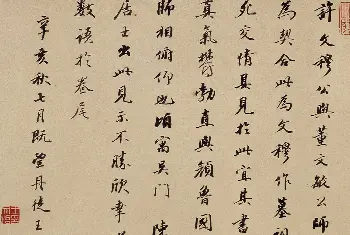 許文穆公與董文敏公師
為契合此為文穆作墓祠
死交情具見於此宜其書
真氣鬱勃直與顏魯國
師相俯仰也頃寓吳門 陳
居士出此見示不勝欣幸
數語於卷尾
辛亥秋七月既望丹徒王